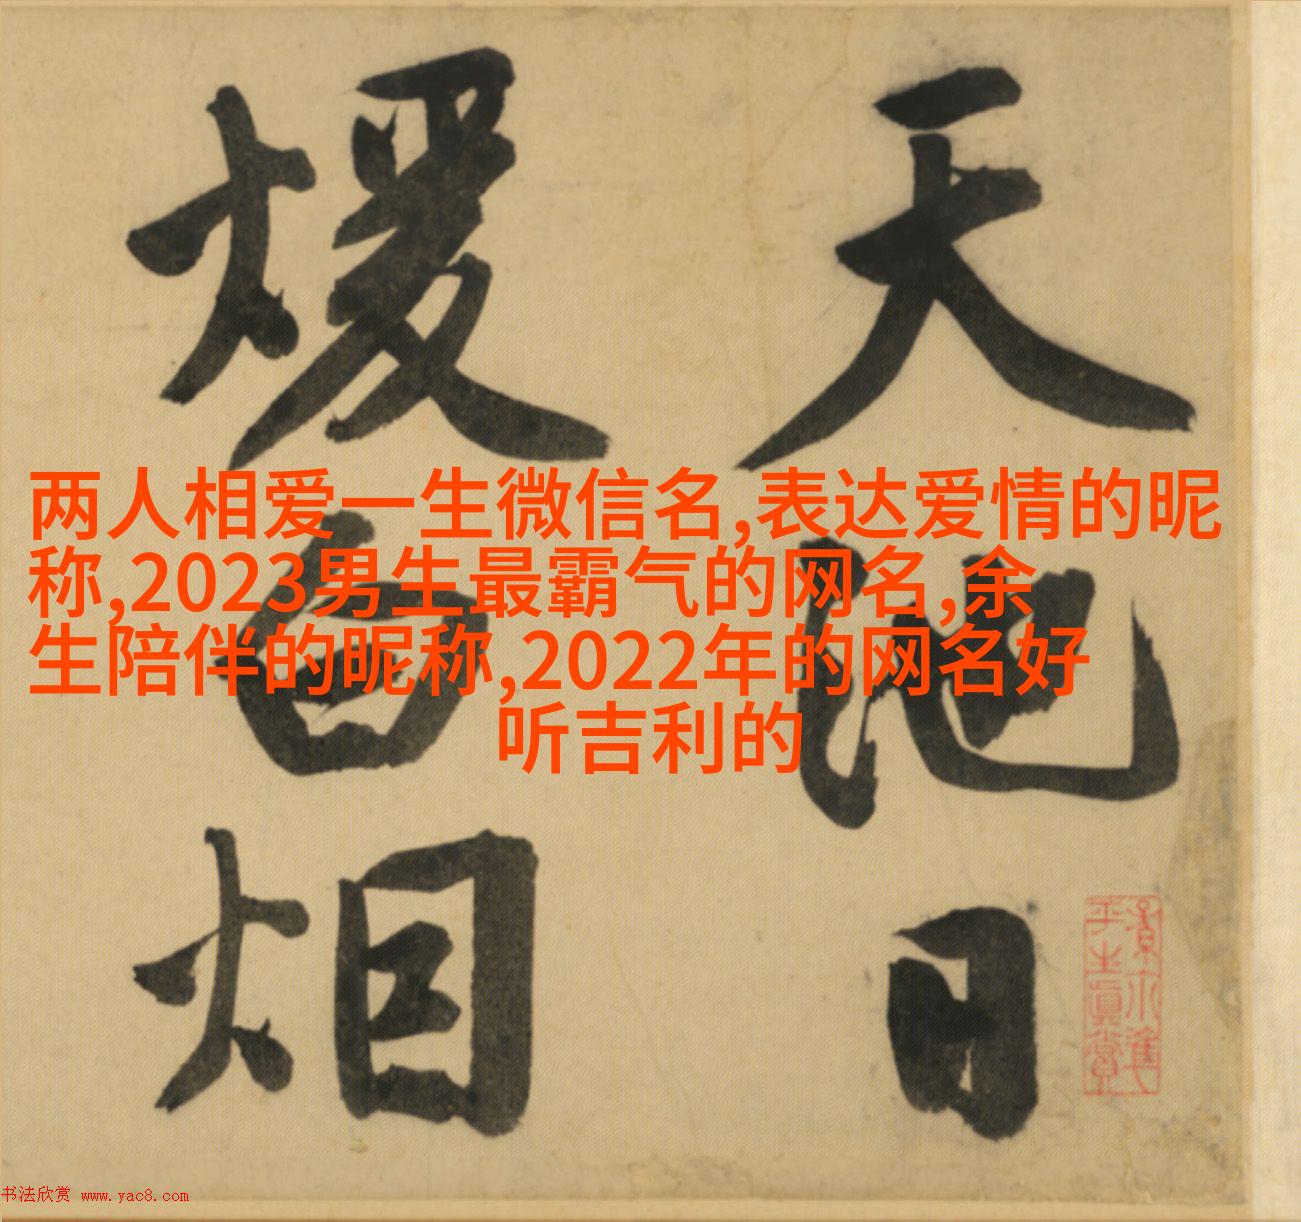 天池日
煖白烟
两人相爱一生微信名,表达爱情的昵
称,2023男生最霸气的网名,余
生陪伴的昵称,2022年的网名好
听吉利的
平生真賞
书法欣赏 www.yac8.com